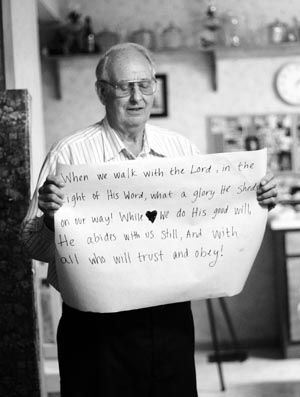 When we walk with the Lord, in the
light of His Word, what a glory He sheds
on our way! While ♥ we do His good will,
He abides with us still, And with
all who will trust and obey!